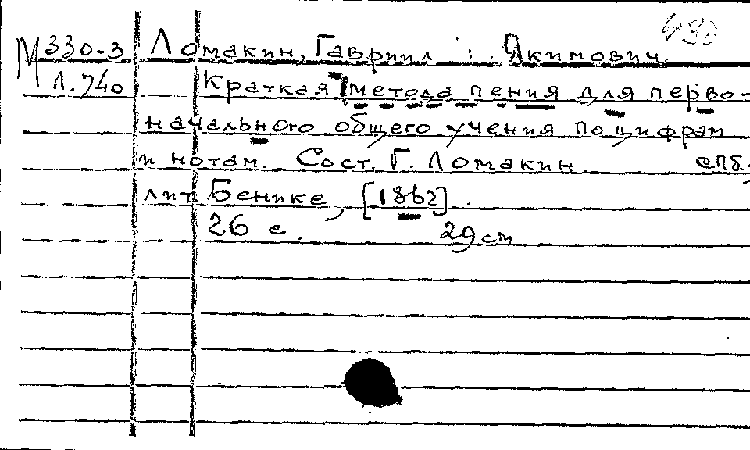 М 330-3 Ломакин, Гавриил Якимович
Л.740 Краткая метода пения для перво-
начального общего учения по цифрам
и нотам. Сост. Г. Ломакин. спб.,
лит. Бенике, [1862].
26 с. 29 см